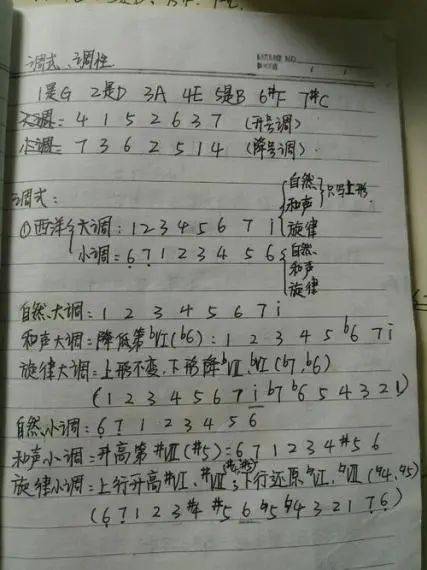 调式、调性
1是G 2是D 3A 4E 5是B 6#F 7#C
大调= 4 1 5 2 6 3 7 (升号调)
小调= 7 3 6 2 5 1 4 (降号调)
调式:
自然
①西洋 大调: 1 2 3 4 5 6 7 i 和声 只写上形
旋律
小调= 6 7 1 2 3 4 5 6 自然
和声
旋律
自然大调: 1 2 3 4 5 6 7 i
和声大调=降低第♭VI(♭6): 1 2 3 4 5 ♭6 7 i
旋律大调=上形不变,下形降♭VII、♭VI(♭7、♭6)
(1 2 3 4 5 6 7 i ♭7 ♭6 5 4 3 2 1)
自然小调: 6 7 1 2 3 4 5 6
和声小调=升高第#VII(#5)=6 7 1 2 3 4 #5 6
旋律小调=上行升高#VI、#VII(#4、#5);下行还原♮VI、♮VII(♮4、♮5)
(6 7 1 2 3 #4 #5 6 ♮5 ♮4 3 2 1 7 6)